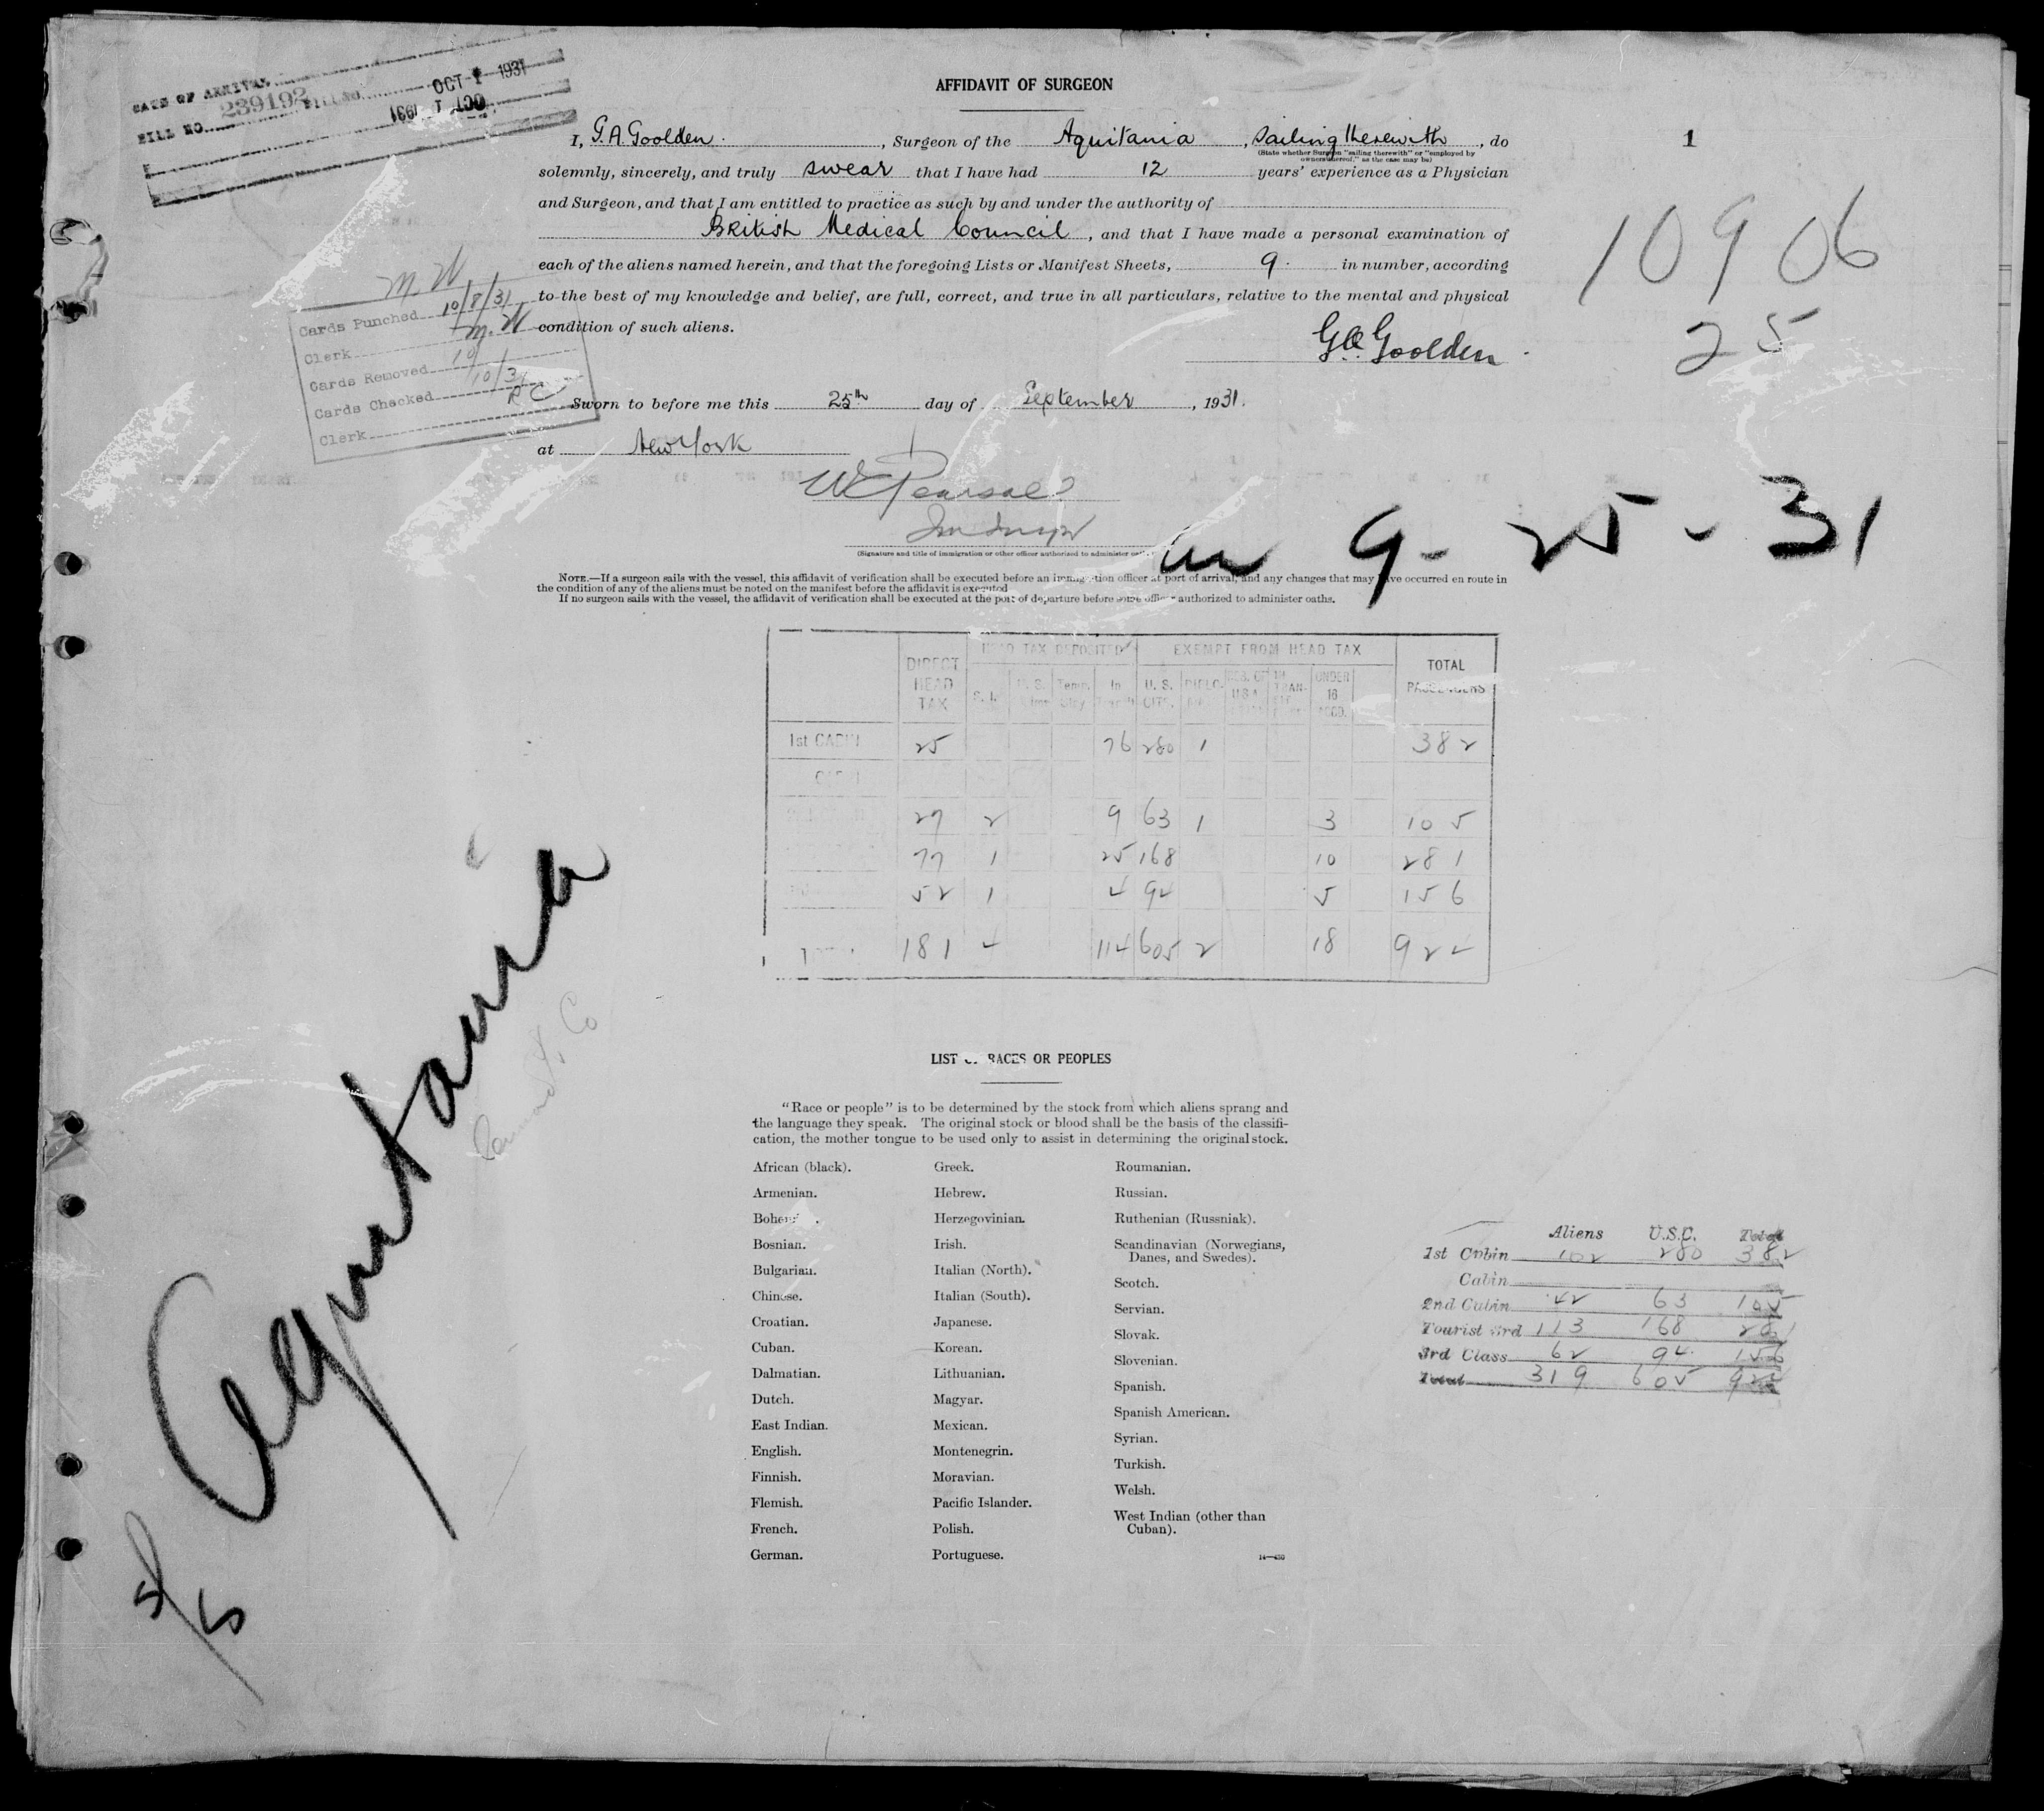 DATE OF ARRIVAL OCT - 1 1931
BILL NO. 239192
OCT 1 1931
AFFIDAVIT OF SURGEON
1
I, G.A. Goolden. , Surgeon of the Aquitania , Sailing therewith , do
(State whether Surgeon "sailing therewith" or "employed by
owners thereof," as the case may be)
solemnly, sincerely, and truly swear that I have had 12 years' experience as a Physician
and Surgeon, and that I am entitled to practice as such by and under the authority of
British Medical Council , and that I have made a personal examination of
each of the aliens named herein, and that the foregoing Lists or Manifest Sheets, 9. in number, according
to the best of my knowledge and belief, are full, correct, and true in all particulars, relative to the mental and physical
condition of such aliens.
GA Goolden
10906
25
M. W
Cards Punched 10/8/31
Clerk M. W
Cards Removed
Cards Checked 10/10/31
Clerk RC
Sworn to before me this 25th day of September , 1931.
at New York
W Pearsall
(Signature and title of immigration or other officer authorized to administer oaths)
in 9-25-31
NOTE.—If a surgeon sails with the vessel, this affidavit of verification shall be executed before an immigration officer at port of arrival, and any changes that may have occurred en route in
the condition of any of the aliens must be noted on the manifest before the affidavit is executed
If no surgeon sails with the vessel, the affidavit of verification shall be executed at the port of departure before some officer authorized to administer oaths.
DIRECT HEAD TAX HEAD TAX DEPOSITED EXEMPT FROM HEAD TAX TOTAL PASSENGERS
S. I. U. S. Temp. Stay In Transit U. S. CITS. DIPLO. RES. OF USA IN TRANSIT UNDER 16 ACCD.
1st CABIN 25 76 280 1 382
CABIN
27 2 9 63 1 3 105
77 1 25 168 10 281
52 1 4 94 5 156
181 4 114 605 2 18 924
Aquitania
Cunard. Co
5/5
LIST OF RACES OR PEOPLES
"Race or people" is to be determined by the stock from which aliens sprang and
the language they speak. The original stock or blood shall be the basis of the classifi-
cation, the mother tongue to be used only to assist in determining the original stock.
African (black).
Armenian.
Bohemian.
Bosnian.
Bulgarian.
Chinese.
Croatian.
Cuban.
Dalmatian.
Dutch.
East Indian.
English.
Finnish.
Flemish.
French.
German.
Greek.
Hebrew.
Herzegovinian.
Irish.
Italian (North).
Italian (South).
Japanese.
Korean.
Lithuanian.
Magyar.
Mexican.
Montenegrin.
Moravian.
Pacific Islander.
Polish.
Portuguese.
Roumanian.
Russian.
Ruthenian (Russniak).
Scandinavian (Norwegians,
Danes, and Swedes).
Scotch.
Servian.
Slovak.
Slovenian.
Spanish.
Spanish American.
Syrian.
Turkish.
Welsh.
West Indian (other than
Cuban).
14—430
Aliens U.S.C. Total
1st Cabin 102 280 382
Cabin
2nd Cabin 42 63 105
Tourist 3rd 113 168 281
3rd Class 62 94 156
Total 319 605 924